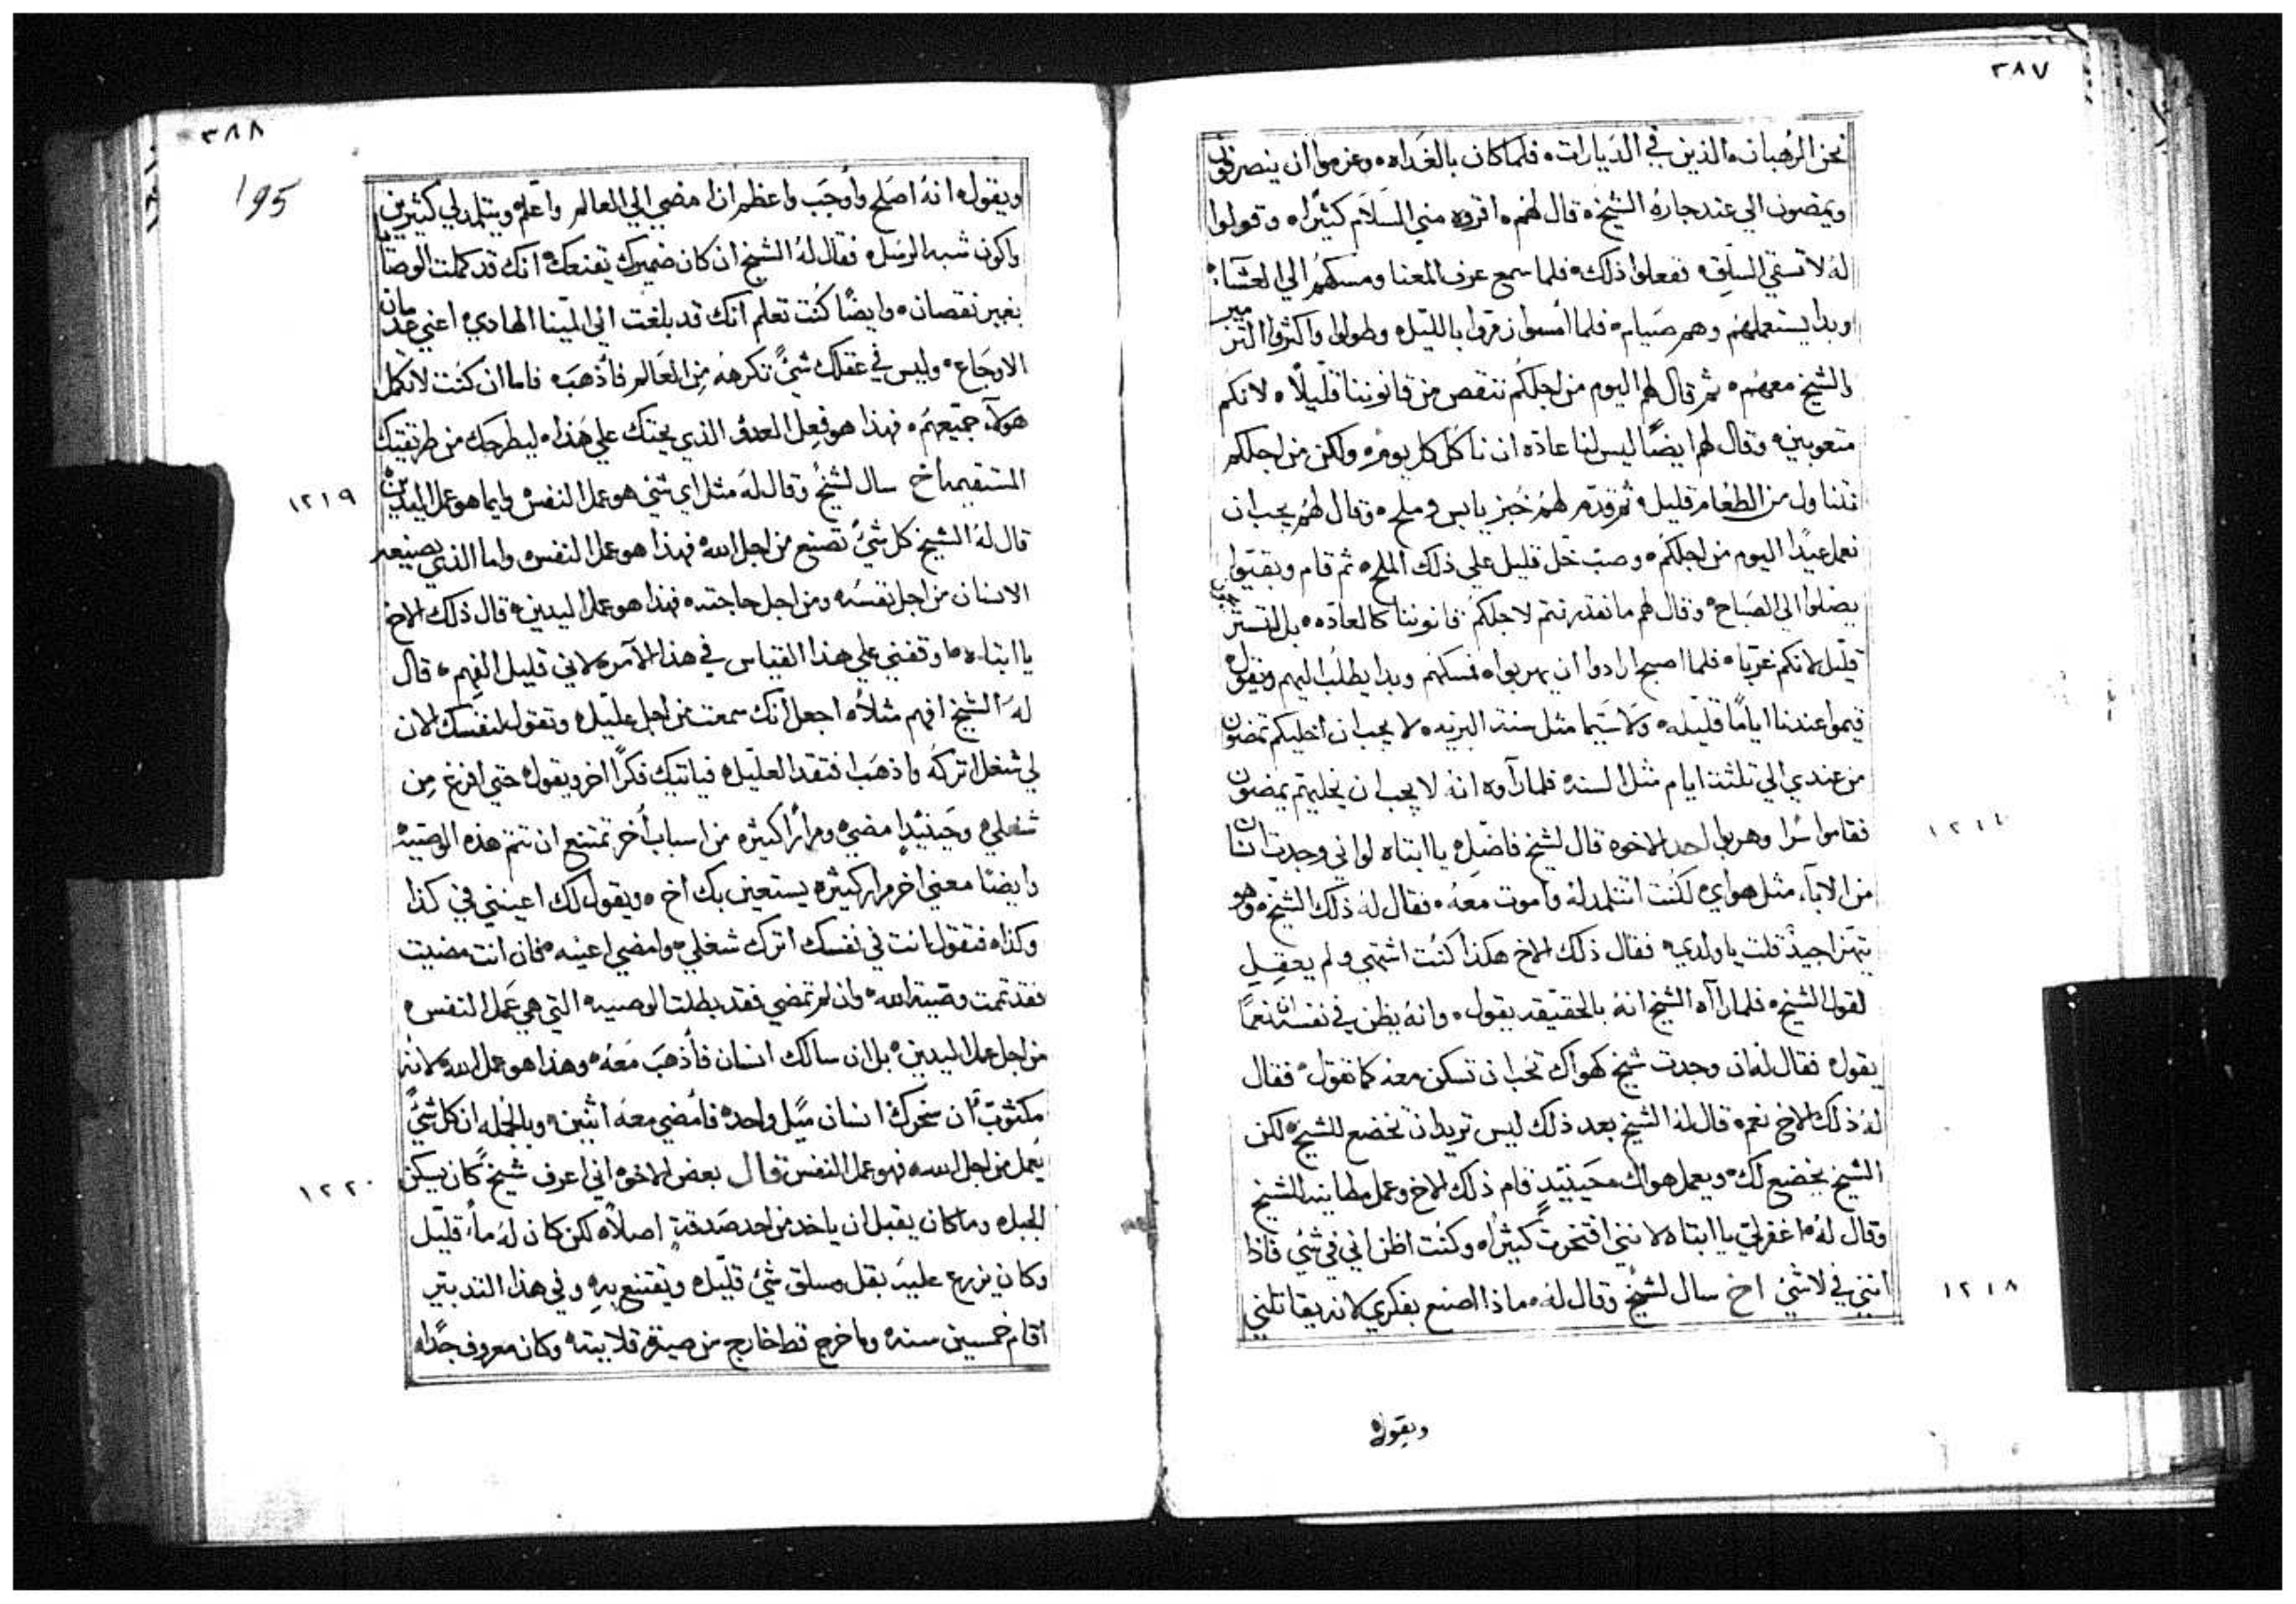 ٣٨٧
نحن الرهبان الذين في الديارات فلما كان بالغداه وعزموا ان ينصرفون
ويمضون الي عند جاره الشيخ قال لهم اقروه مني السلام كثيرا وقولوا
له لا تسقي السلق ففعلوا ذلك فلما سمع عرف المعنا ومسكهم الي العشاء
وبدا يستعملهم وهم صيام فلما أمسوا زمروا بالليل وطولوا واكثروا التزمير
والشيخ معهم ثم قال لهم اليوم من اجلكم ننقص من قانوننا قليلاً لانكم
متعوبين وقال لهم ايضاً ليس لنا عاده ان ناكل كل يوم ولكن من اجلكم
نتناول من الطعام قليل ثم قدم لهم خبز يابس وملح وقال لهم يجب ان
نعمل عيدًا اليوم من اجلكم وصب خل قليل علي ذلك الملح ثم قام وبقيوا
يصلوا الي الصباح وقال لهم ما نقدر نتم لاجلكم قانوننا كالعاده بل لتستريحون
قليل لانكم غربا فلما اصبح ارادوا ان يهربوا فمسكهم وبدا يطلب اليهم ويقول
قيموا عندنا اياماً قليله ولا سيما مثل سنة البريه لا يجب ان اخليكم تمضون
من عندي الي ثلثة ايام مثل السنه فلما رآوه انه لا يجب ان يخليهم يمضون
فقاموا سرا وهربوا احد الاخوه قال لشيخ فاضل يا ابتاه لو اني وجدت انسان
١٢١٤
من الابآء مثل هواي لكنت اتتلمد له واموت معه فقال له ذلك الشيخ وهو
يتهزا جيد قلت يا ولدي فقال ذلك الاخ هكذا كنت اشتهي ولم يعقل
لقول الشيخ فلما راآه الشيخ انه بالحقيقه يقول وانه يظن في نفسه ان نعماً
يقول فقال له ان وجدت شيخ كهواك تحب ان تسكن معه كما تقول فقال
له ذلك الاخ نعم قال له الشيخ بعد ذلك ليس تريد ان تخضع للشيخ لكن
الشيخ يخضع لك ويعمل هواك حينيدٍ قام ذلك الاخ وعمل مطانيه للشيخ
وقال له اغفر لي يا ابتاه لانني افتخرت كثيرا وكنت اظن اني في شي فاذا
انني في لا شي اخ سال لشيخ وقال له ماذا اصنع بفكري لانه يقاتلني
١٢١٨
ويقول
٣٨٨
195
ويقول انه اصلح واوجب واعظم ان امضي الي العالم واعلم ويتلمد لي كثيرين
واكون شبه الرسل فقال له الشيخ ان كان ضميرك يقنعك انك قد كملت الوصايا
بغير نقصان وايضًا كنت تعلم انك قد بلغت الي المينا الهادي اعني عدمان
الاوجاع وليس في عقلك شيً تكرهه من العالم فأذهب فاما ان كنت لا تكمل
هولآء جميعهم فهذا هو فعل العدو الذي يحتك علي هذا ليطرحك من طريقتك
المستقيمه اخ سال لشيخ وقال له مثل اي شي هو عمل النفس وايما هو عمل اليدين
١٢١٩
قال له الشيخ كل شي تصنع من اجل الله فهذا هو عمل النفس واما الذي يصنعه
الانسان من اجل نفسه ومن اجل حاجته فهذا هو عمل اليدين قال ذلك الاخ
يا ابتاه اوقفني علي هذا القياس في هذا الامر لاني قليل الفهم قال
له الشيخ افهم مثلاً اجعل انك سمعت من اجل عليل وتقول لنفسك الان
لي شغل اتركه واذهب افتقد العليل فياتيك فكرًا اخر ويقول حتي افرغ من
شغلي وحينيدٍ امضي ومرارًا كثيره من اسباب أخر تمتنع ان تتم هذه الوصيه
وايضًا معني اخر مرار كثيره يستعين بك اخ ويقول لك اعينني في كذا
وكذا فتقول انت في نفسك أترك شغلي وامضي اعينه فان انت مضيت
فقد تممت وصية الله وان لم تمضي فقد بطلت الوصيه التي هي عمل النفس
من اجل عمل اليدين بل ان سالك انسان فأذهب معه وهذا هو عمل الله لانه
مكتوب ان سخرك انسان ميل واحد فأمضي معه اثنين وبالجمله ان كل شي
يعمل من اجل الله فهو عمل النفس قال بعض الاخوه اني اعرف شيخً كان يسكن
١٢٢٠
الجبل وما كان يقبل ان ياخد من احد صدقةٍ اصلاً لكن كان له مآء قليل
وكان يزرع عليه بقل وسلق شي قليل ويقتنع به وفي هذا التدبير
اقام خمسين سنه وما خرج قط خارج من صيرة قلايته وكان معروف جدا